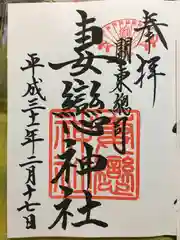 奉拝
関東総司
妻戀神社
平成三十一年二月十七日